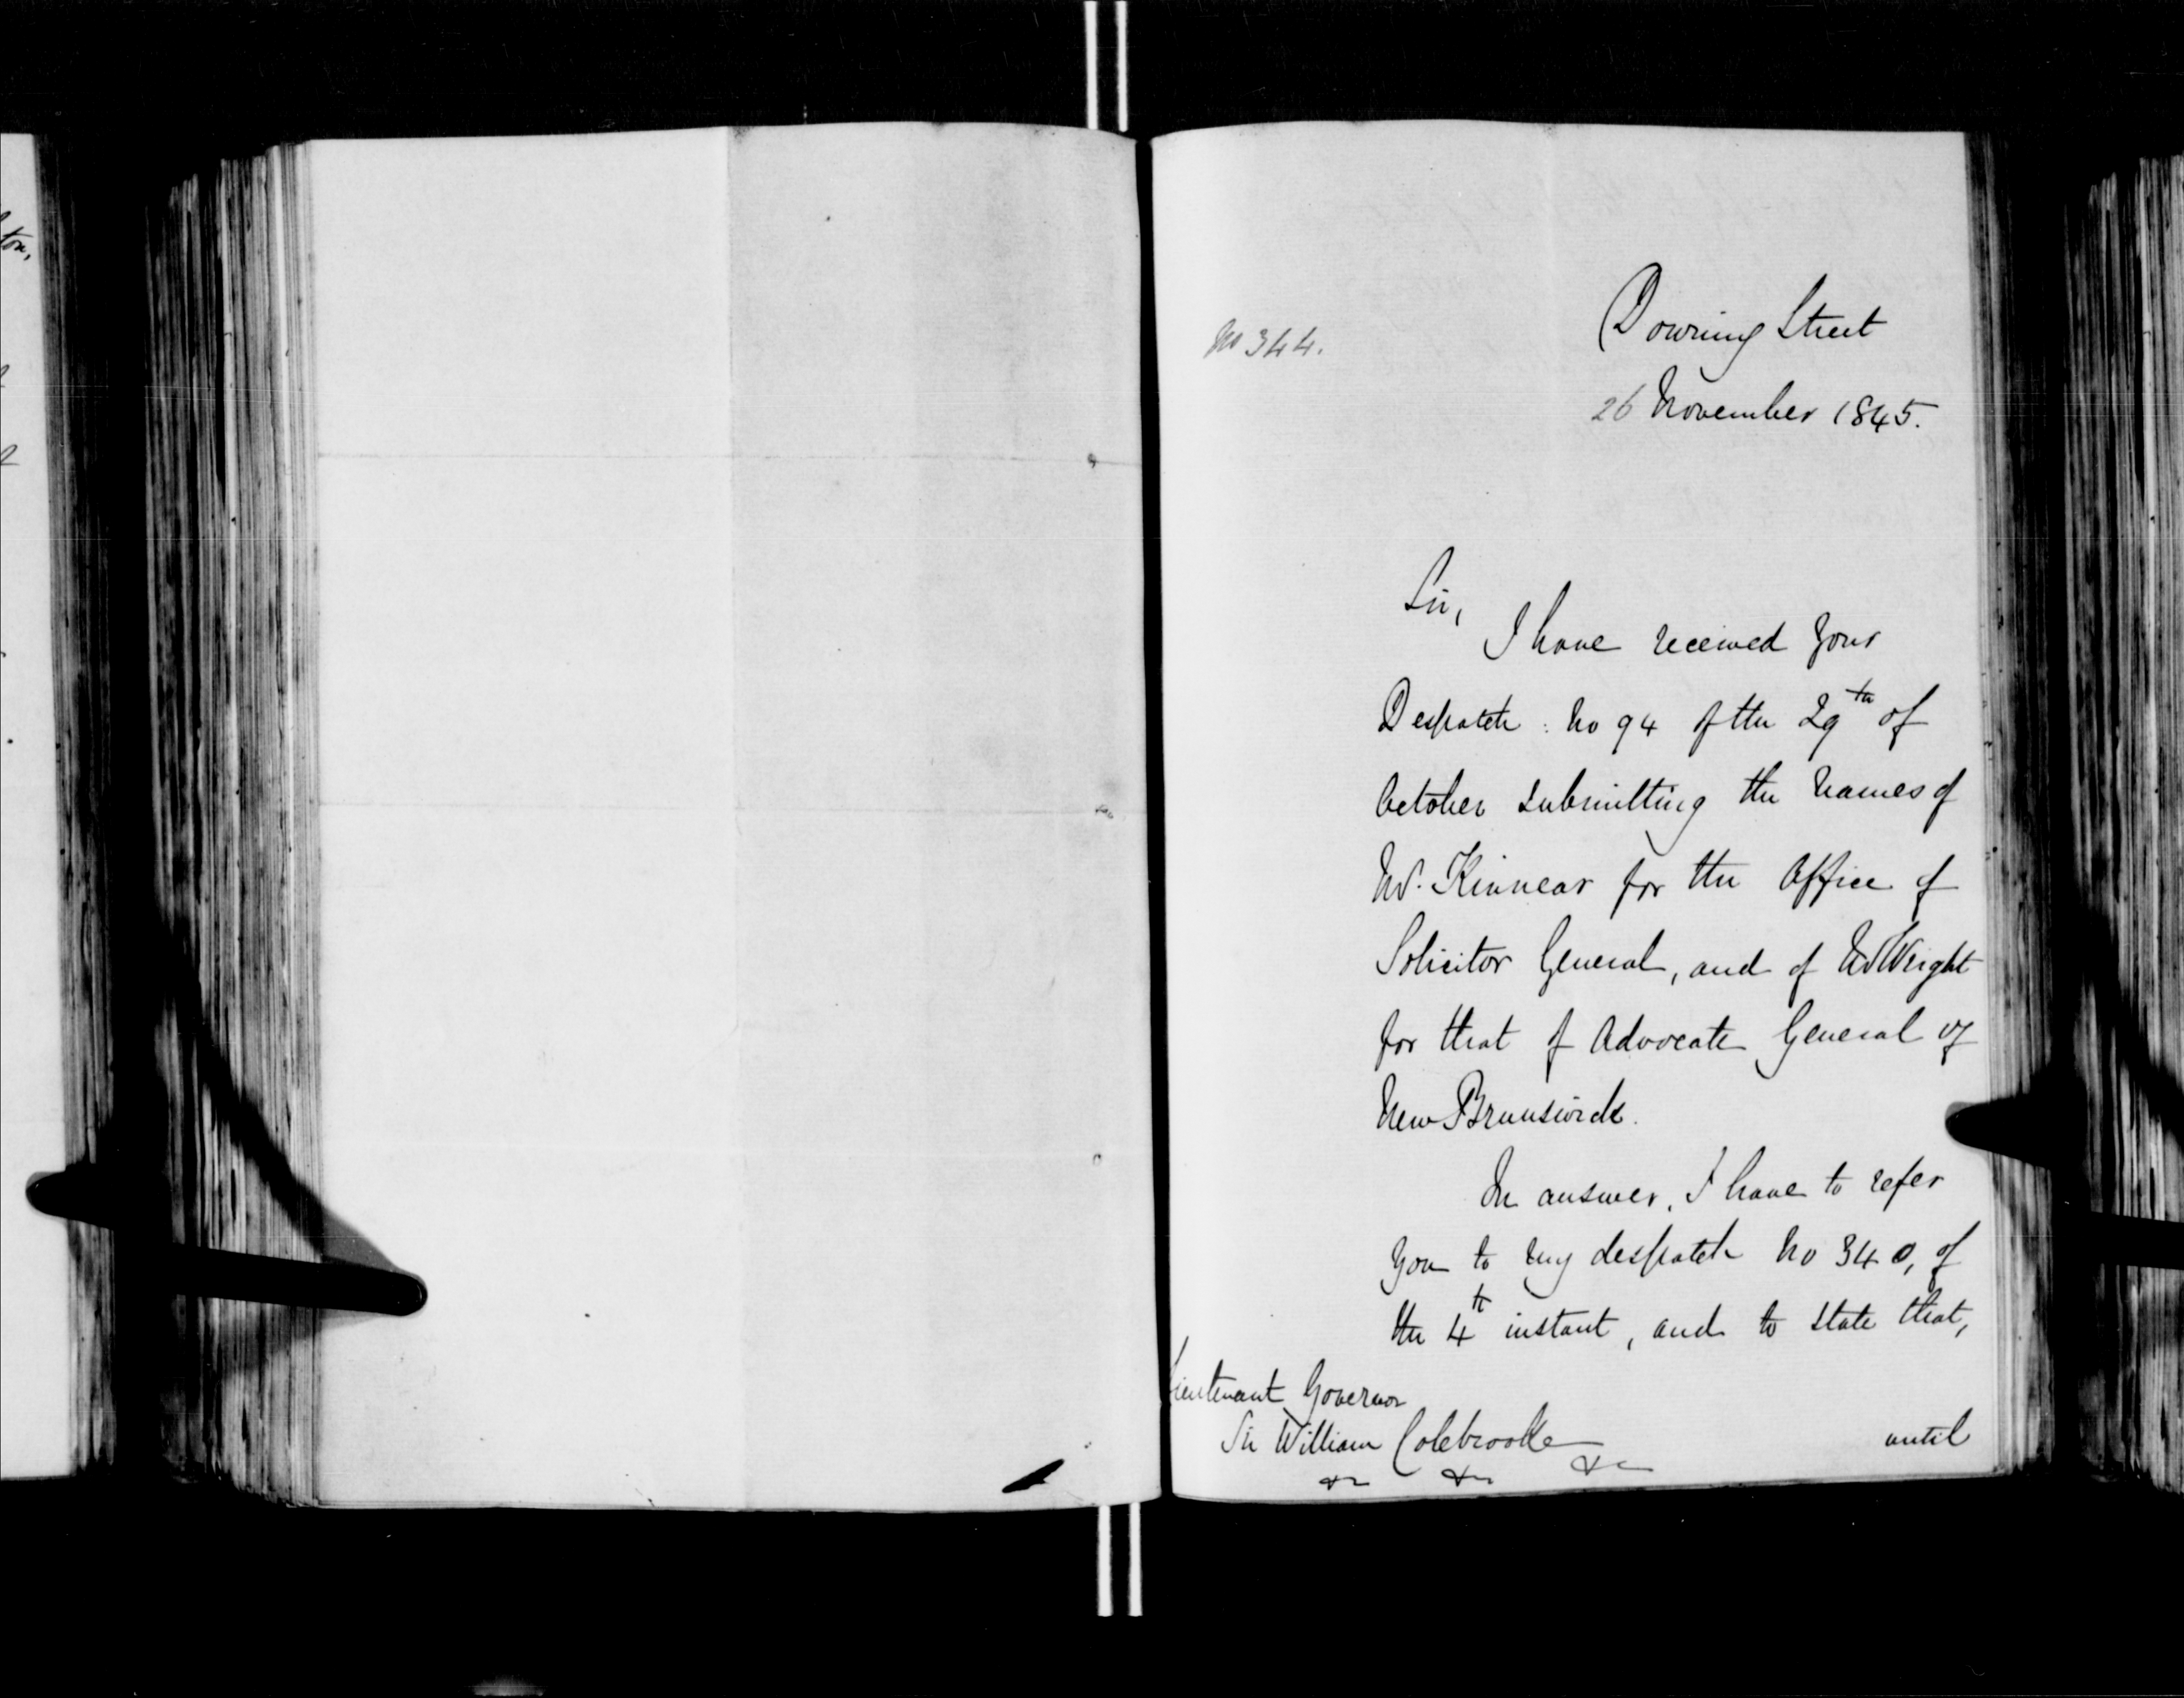 No 344.
Downing Street
26 November 1845.
Sir,
I have received your
Despatch: No 94 of the 29th of
October submitting the names of
Mr. Kinnear for the Office of
Solicitor General, and of Mr Wright
for that of Advocate General of
New Brunswick.
In answer, I have to refer
you to my despatch No 340, of
the 4th instant, and to state that,
Lieutenant Governor
Sir William Colebrooke
&c &c &c
until